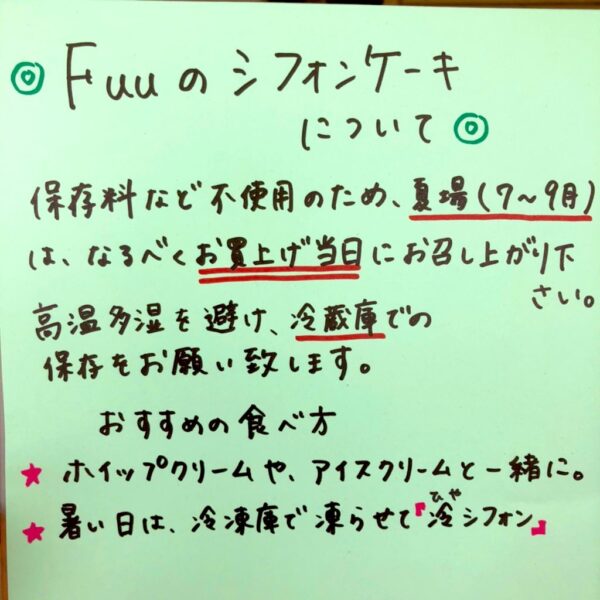 ◎ Fuuのシフォンケーキ
について ◎
保存料など不使用のため、夏場(7〜9月)
は、なるべくお買上げ当日にお召し上がり下
さい。
高温多湿を避け、冷蔵庫での
保存をお願い致します。
おすすめの食べ方
★ ホイップクリームや、アイスクリームと一緒に。
ひや
★ 暑い日は、冷凍庫で凍らせて『冷シフォン』